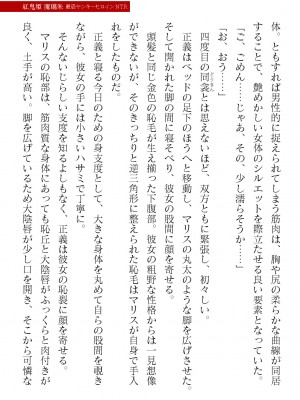 最恐ヤンキーヒロインNTR
体、ともすれば男性的に捉えられてしまう筋肉は、胸や尻の柔らかな曲線が同居
することで、艶めかしい女体のシルエットを際立たせる良い要素となっていた。
「ご、ごめん……じゃあ、その、少し濡らそうか……」
「お、おう……」
四度目の同衾とは思えないほど、双方ともに緊張し、初々しい。
正義はベッドの足下のほうへと移動し、マリスの丸太のような脚を広げさせた。
そして開かれた脚の間に寝そべり、彼女の股間に顔を寄せる。
頭髪と同じ金色の恥毛が生え揃った下腹部。彼女の粗野な性格からは一見想像
ができないが、そのきっちりと逆三角形に整えられた恥毛はマリスが自身で手入
れをしたものだ。
正義と寝る今日のための身支度として、大きな身体を丸めて自らの股間を覗き
ながら、彼女の手には小さいハサミで丁寧に。
そんないじらしい支度を知るよしもなく、正義は彼女の恥裂に顔を寄せる。
マリスの恥部は、筋肉質な身体にあっても恥丘と大陰唇がふっくらと肉付きが
良く、土手が高い。脚を広げているため大陰唇が少し口を開き、そこから可憐な